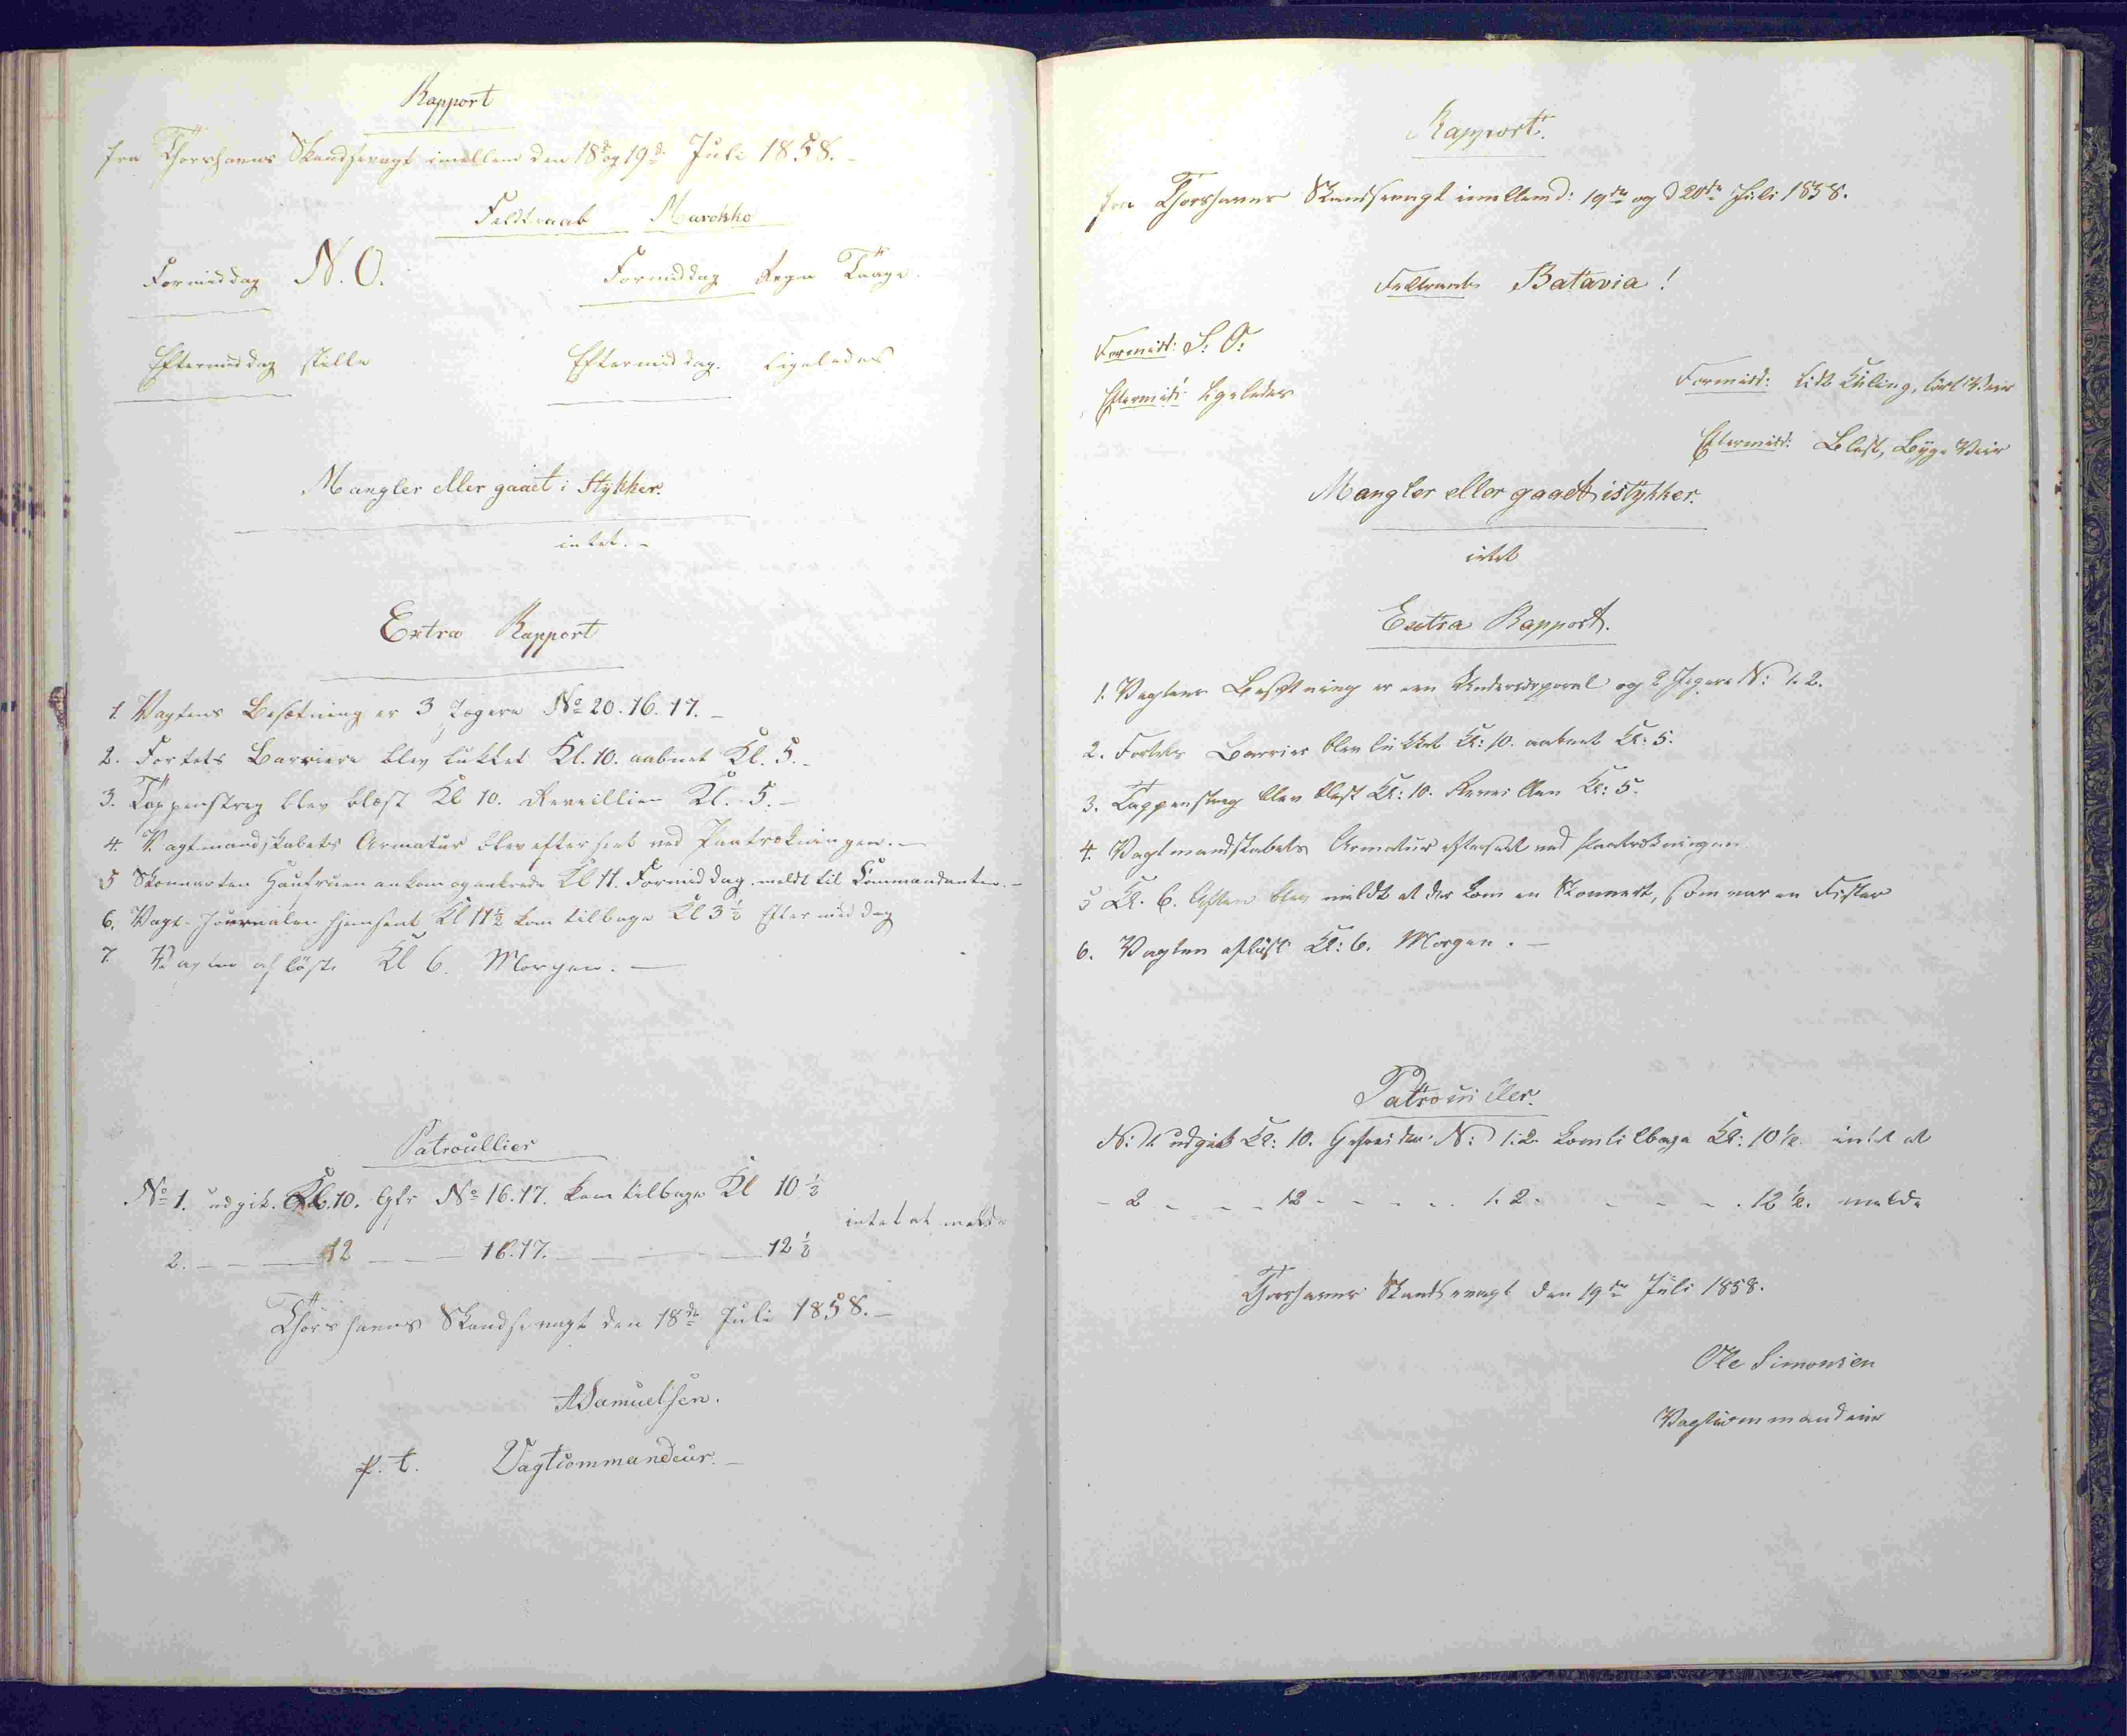 Rapport
fra Thorshavns Skandsevagt imellem den 18de og 19de Juli 1858.-
Feldtraab Marokko
Formiddag N.O. Formiddag Regn Taage.
Eftermiddag stille Eftermiddag. ligeledes
Mangler eller gaaet i Stykker.
intet.-
Extra Rapport
1. Vagtens Besætning er 3 Jægere No 20. 16. 17.-
2. Fortets Barriere blev lukket Kl. 10. aabnet Kl. 5.-
3. Tappenstreg blev blæst Kl 10. Reveillien Kl. 5.-
4. Vagtmandskabets Armatur blev efterseet ved Paatrækningen.-
5 Skonnerten Haufruen ankom og ankrede Kl 11. Formiddag. meldt til Kommandanten.-
6. Vagt-Journalen hjemsent Kl 11½ kom tilbage Kl 3½ Eftermiddag
7. Vagten afløste Kl 6. Morgen.-
Patroullier
No 1. udgik. Kl. 10. Gfr No 16. 17. kom tilbage Kl 10½
intet at melde
2. - - - 12 - - 16. 17. - - - 12½
Thorshavns Skandsevagt den 18de Juli 1858.-
ASamuelsen.
p. t. Vagtcommandeur.-
Rapport.
fra Thorshavns Skandsevagt imellem d: 19de og d 20de Juli 1858.
Feltraab Batavia!
Formidd: S: O:
Eftermidd: ligeledes
Formidd: lidt Kuling, tört Veir
Eftermidd: Blæst, Byge Veir
Mangler eller gaaet istykker.
intet
Extra Rapport.
1. Vagtens Besætning er een Underkorporal og 2 Jægere N: 1. 2.
2. Fortets Barrier blev lukket Kl: 10. aabnet Kl: 5.
3. Tappenstreg blev blæst Kl: 10. Reveillen Kl: 5.
4. Vagtmandskabets Armatur efterseet ved Paatrækningen
5 Kl. 6. Aften blev meldt at der kom en Skonnert, som var en Fisker
6. Vagten aflöst Kl: 6. Morgen.-
Patrouiller.
N: 1. udgik Kl: 10. Gefreider N: 1. 2. kom tilbage Kl: 10½ intet at
- 2 - - - 12 - - - - 1. 2. - - - - 12½. melde
Thorshavns Skandsevagt den 19de Juli 1858.
Ole Simonsen
Vagtkommandeur